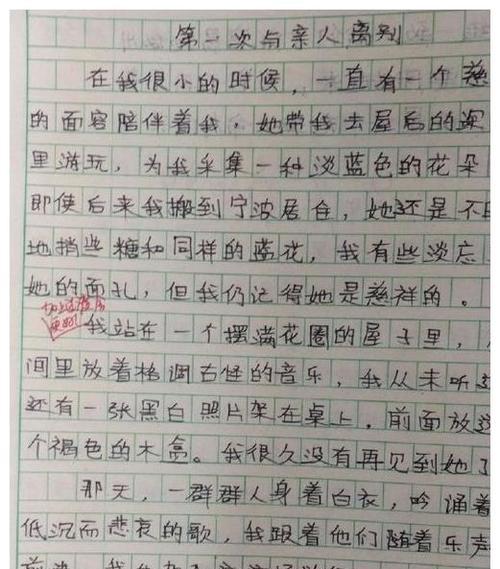 第一次与亲人离别
在我很小的时候，一直有一个慈
的面容陪伴着我，她带我去屋后的深
里游玩，为我采集一种淡蓝色的花朵
即使后来我搬到宁波居住，她还是不
地捎些糖和同样的蓝花，我有些淡忘
她的面孔，但我仍记得她是慈祥的。
我站在一个摆满花圈的屋子里，
间里放着格调古怪的音乐，我从未听
还有一张黑白照片架在桌上，前面放
个褐色的木盒。我很久没有再见到她了
那天，一群群人身着白衣，吟诵着
低沉而悲哀的歌，我跟着他们随着乐声